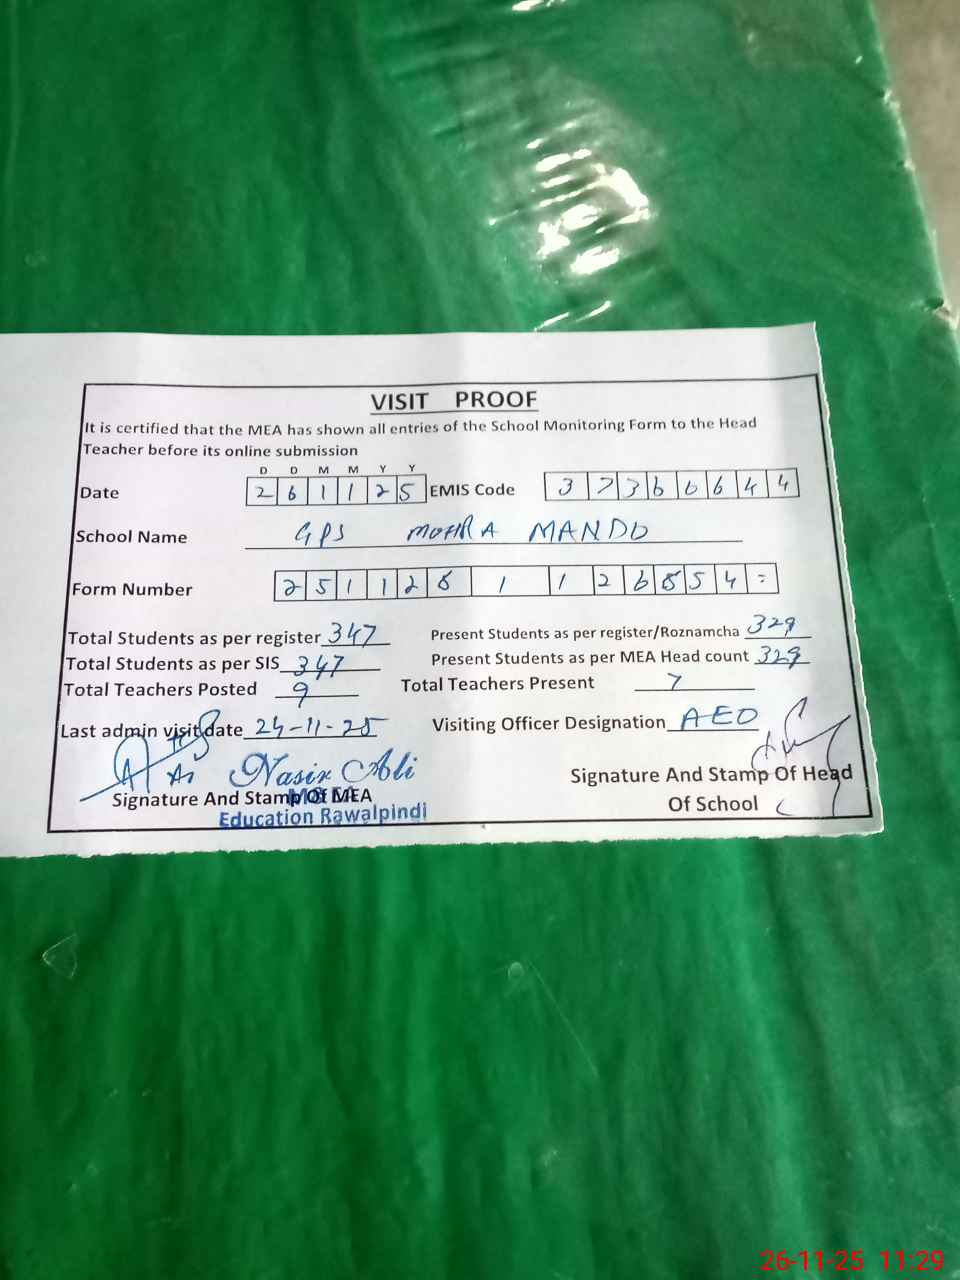 VISIT PROOF
It is certified that the MEA has shown all entries of the School Monitoring Form to the Head
Teacher before its online submission
D D M M Y Y
Date 2 6 1 1 2 5 EMIS Code 3 7 3 6 0 6 4 4
School Name GPS MOHRA MANDO
Form Number 2 5 1 1 2 6 1 1 2 6 8 5 4 =
Total Students as per register 347 Present Students as per register/Roznamcha 329
Total Students as per SIS 347 Present Students as per MEA Head count 329
Total Teachers Posted 9 Total Teachers Present 7
Last admin visit date 24-11-25 Visiting Officer Designation AEO
Nasir Ali
Signature And Stamp Of MEA Signature And Stamp Of Head
Education Rawalpindi Of School
26-11-25 11:29